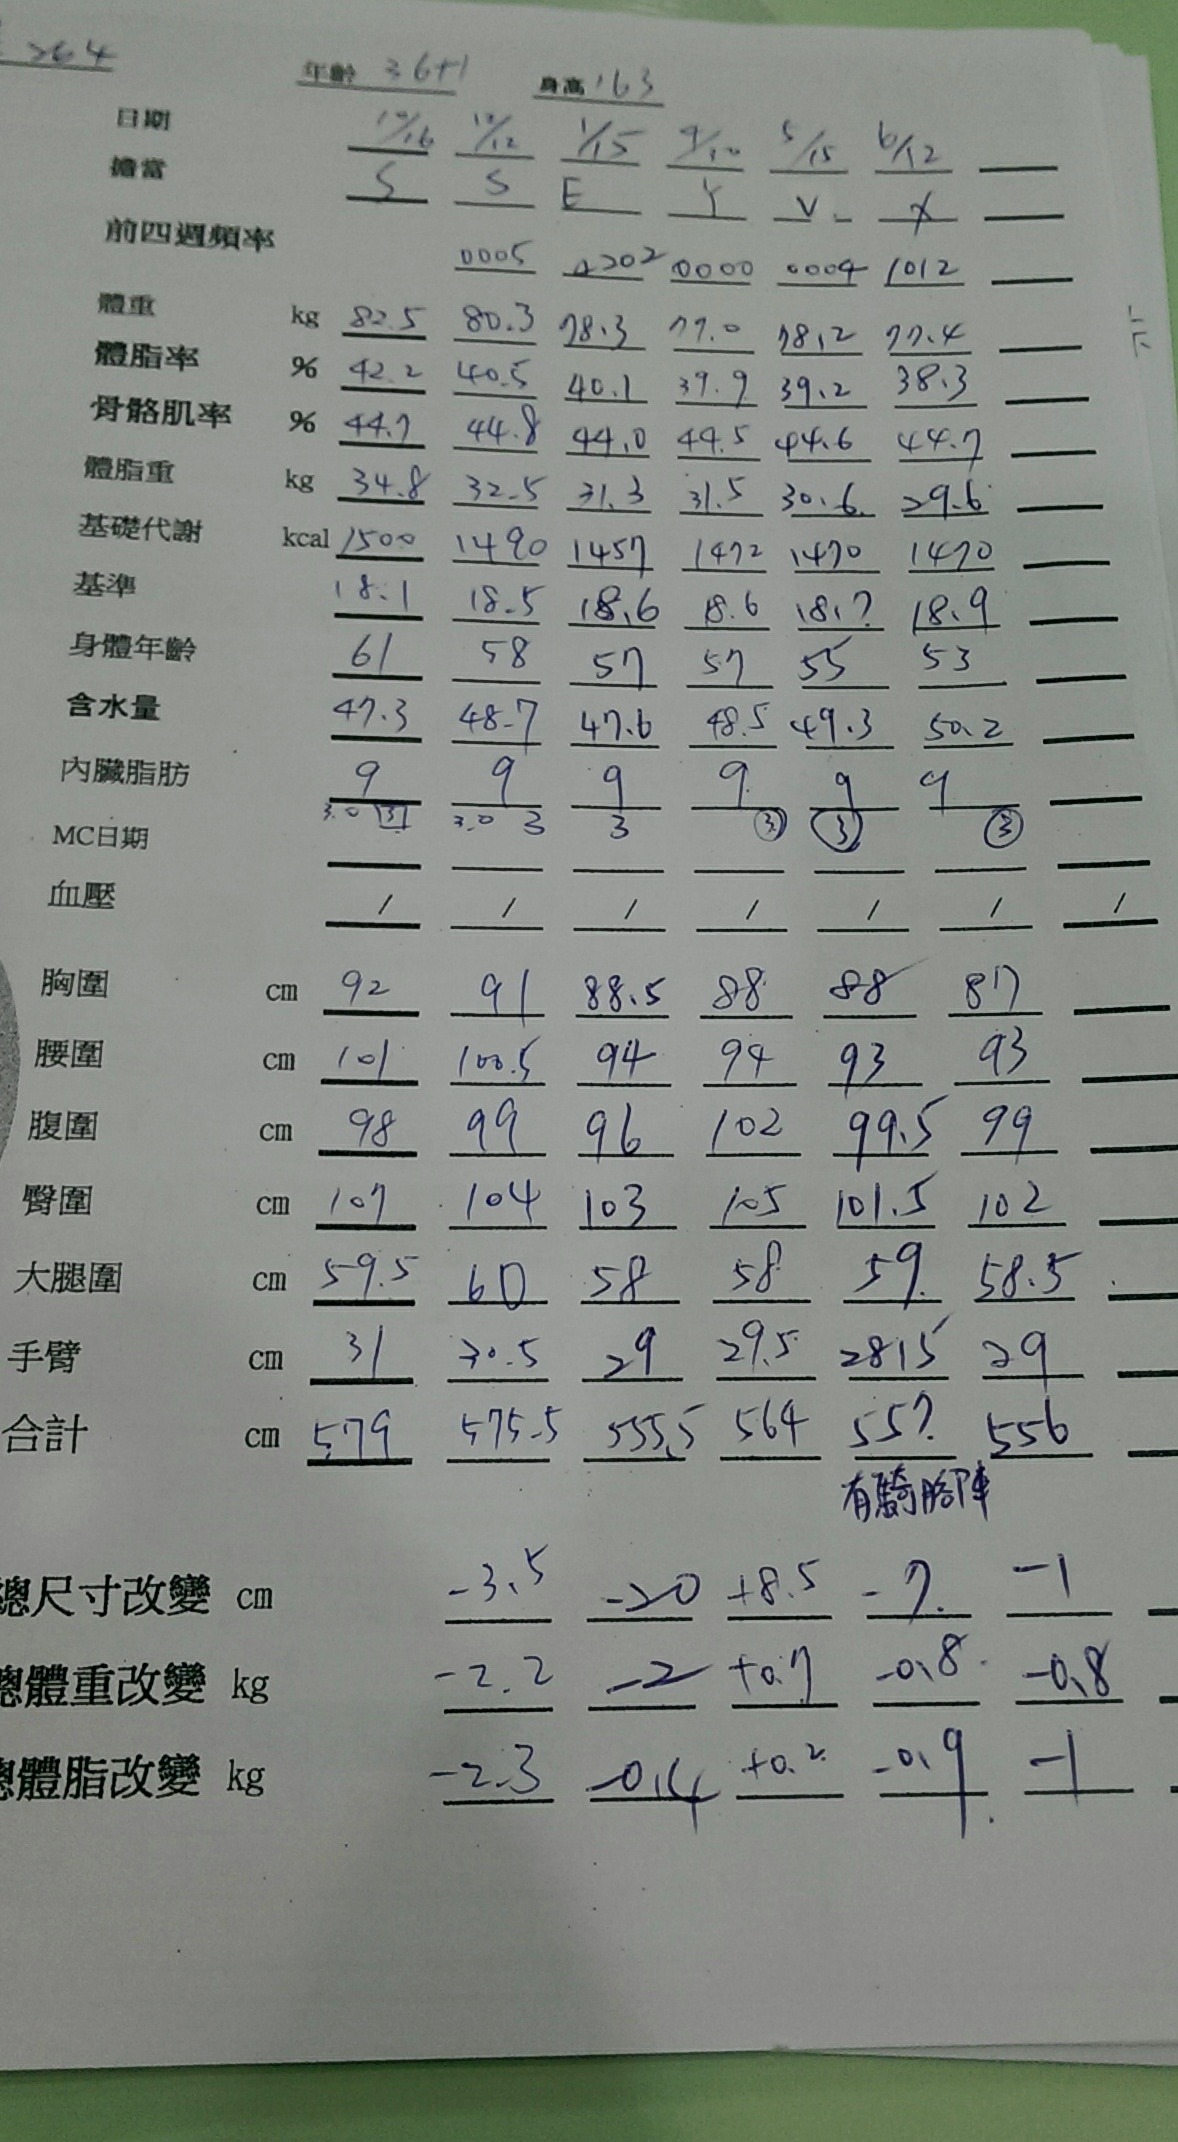 264 年齡 36+1 身高 163
日期 10/16 12/12 1/15 9/10 5/15 6/12
擔當 S S E Y V X
前四週頻率 0005 0000 0004 1012
體重 kg 82.5 80.3 78.3 77.0 78.2 77.4
體脂率 % 42.2 40.5 40.1 39.9 39.2 38.3
骨骼肌率 % 44.7 44.8 44.0 44.5 44.6 44.7
體脂重 kg 34.8 32.5 31.3 31.5 30.6 29.6
基礎代謝 kcal 1500 1490 1457 1472 1470 1470
基準 18.1 18.5 18.6 18.6 18.7 18.9
身體年齡 61 58 57 57 55 53
含水量 47.3 48.7 47.6 48.5 49.3 50.2
內臟脂肪 9 9 9 9 9 9
3.0 3 3.0 3 3 3 3 3
MC日期
血壓 / / / / / / /
胸圍 cm 92 91 88.5 88 88 87
腰圍 cm 101 100.5 94 94 93 93
腹圍 cm 98 99 96 102 99.5 99
臀圍 cm 107 104 103 105 101.5 102
大腿圍 cm 59.5 60 58 58 59 58.5
手臂 cm 31 30.5 29 29.5 28.5 29
合計 cm 579 575.5 555.5 564 557 556
有騎腳
總尺寸改變 cm -3.5 -20 +8.5 -7 -1
總體重改變 kg -2.2 -2 +0.7 -0.8 -0.8
總體脂改變 kg -2.3 -0.4 +0.2 -0.9 -1